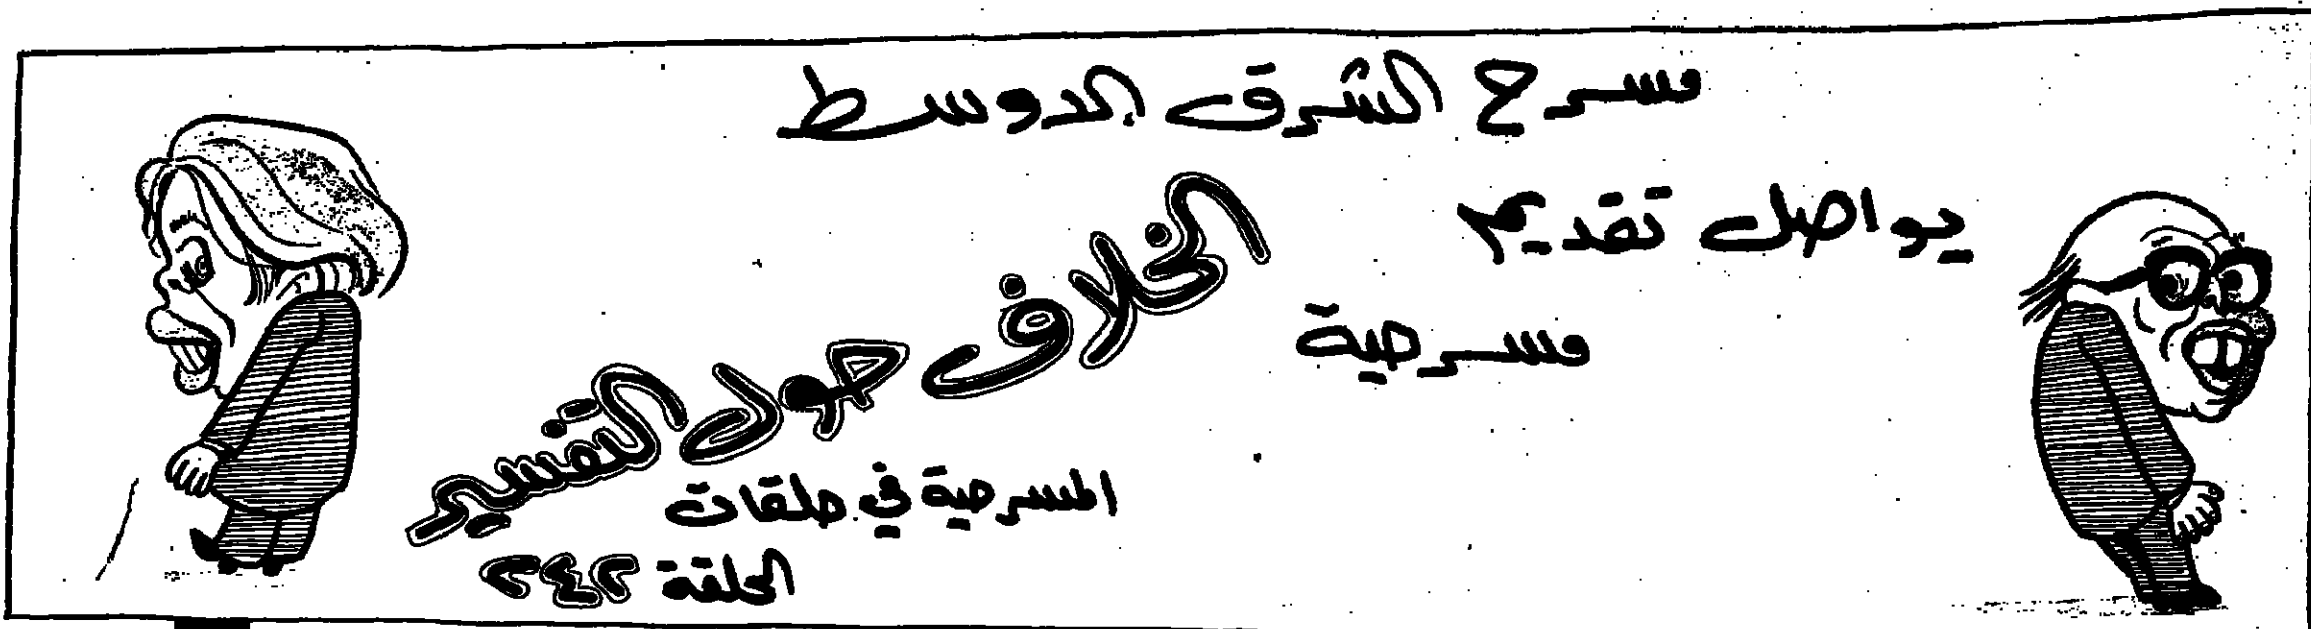 مسرح الشرق الاوسط
يواصل تقديم
مسرحية
الخلاف حول التفسير
المسرحية في حلقات
الحلقة ٢٤٢